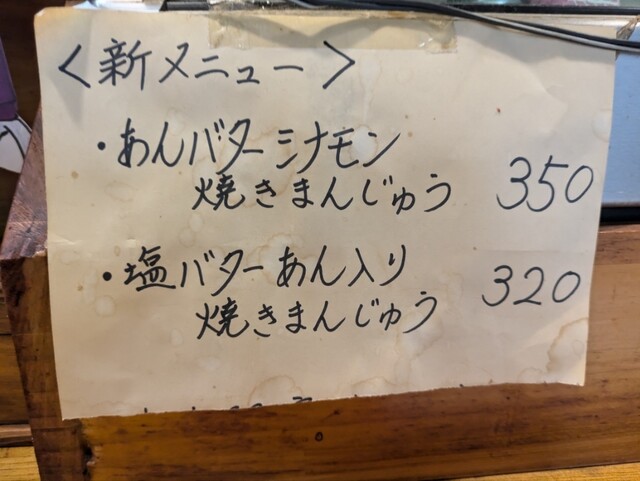 <新メニュー>
・あんバターシナモン
焼きまんじゅう 350
・塩バターあん入り
焼きまんじゅう 320